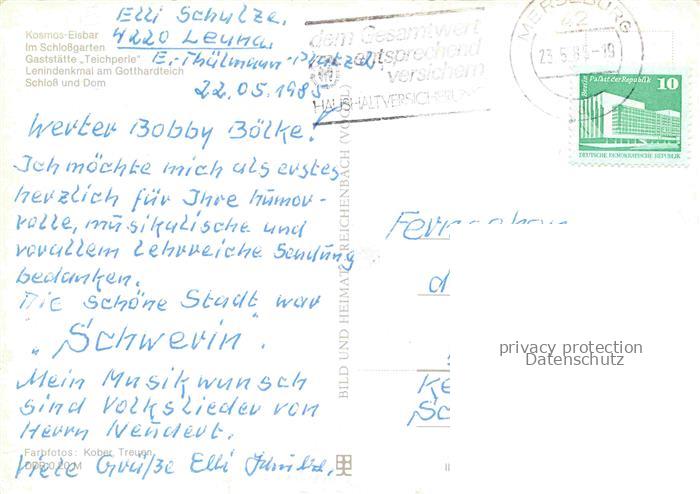 Kosmos-Eisbar
Im Schloßgarten
Gaststätte „Teichperle"
Lenindenkmal am Gotthardteich
Schloß und Dom
Elli Schulze.
4220 Leuna.
E.-Thälmann-Platz 2.
22.05.1985
Werter Bobby Bölke.
Ich möchte mich als erstes
herzlich für Ihre humor-
volle, musikalische und
vorallem lehrreiche Sendung
bedanken.
Die schöne Stadt war
„Schwerin".
Mein Musikwunsch
sind Volkslieder von
Herrn Neudert.
Viele Grüße Elli Schulze.
Farbfotos: Kober, Treuen
DDR 0,20 M
BILD UND HEIMAT REICHENBACH (VOGTL)
dem Gesamtwert
entsprechend
versichern
HAUSHALTVERSICHERUNG
MERSEBURG
42
23.5.85-19
Berlin Palast der Republik 10
DEUTSCHE DEMOKRATISCHE REPUBLIK
privacy protection
Datenschutz